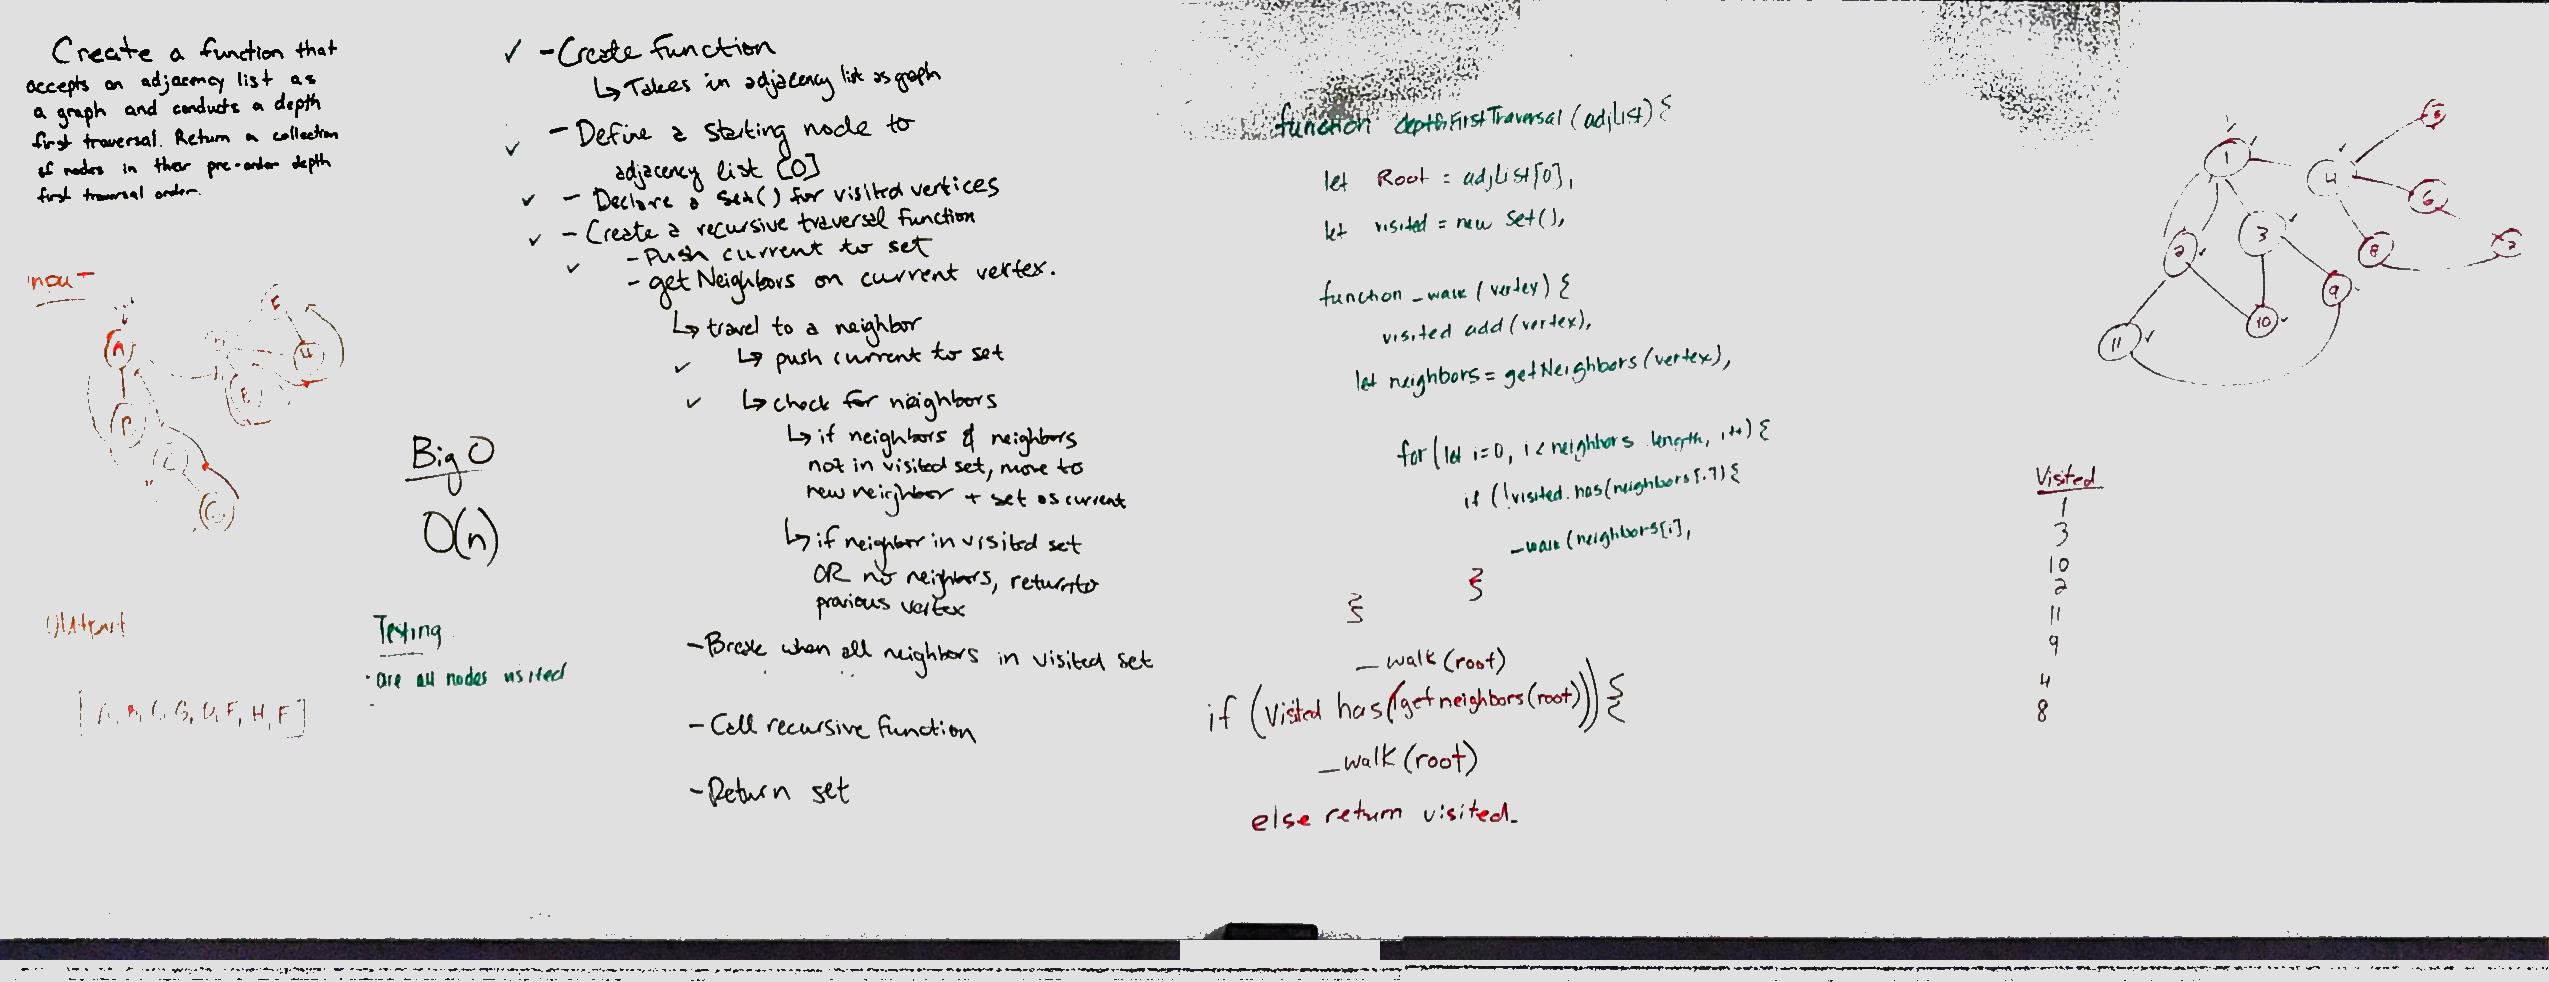 Create a function that
accepts an adjacency list as
a graph and conducts a depth
first traversal. Return a collection
of nodes in their pre-order depth
first traversal order.
Input
A
B
C
G
H
Output
[A, B, C, G, D, E, H, F]
Big O
O(n)
Testing
· are all nodes visited
✓ - Create function
↳ Takes in adjacency list as graph
✓ - Define a starting node to
adjacency list [0]
✓ - Declare a set() for visited vertices
✓ - Create a recursive traversal function
- Push current to set
✓ - get Neighbors on current vertex.
↳ travel to a neighbor
✓ ↳ push current to set
✓ ↳ check for neighbors
↳ if neighbors & neighbors
not in visited set, move to
new neighbor + set as current
↳ if neighbor in visited set
OR no neighbors, return to
previous vertex
- Break when all neighbors in visited set
- Call recursive function
- Return set
function depthFirstTraversal (adjList) {
let Root = adjList[0];
let visited = new Set();
function _walk (vertex) {
visited add (vertex);
let neighbors = getNeighbors (vertex);
for (let i=0; i < neighbors.length; i++) {
if (!visited.has(neighbors[i]) {
_walk (neighbors[i];
}
}
_walk (root)
if (visited has (getneighbors (root))) {
_walk (root)
else return visited.
1
4
5
6
8
7
2
3
9
10
11
Visited
1
3
10
2
11
9
4
8